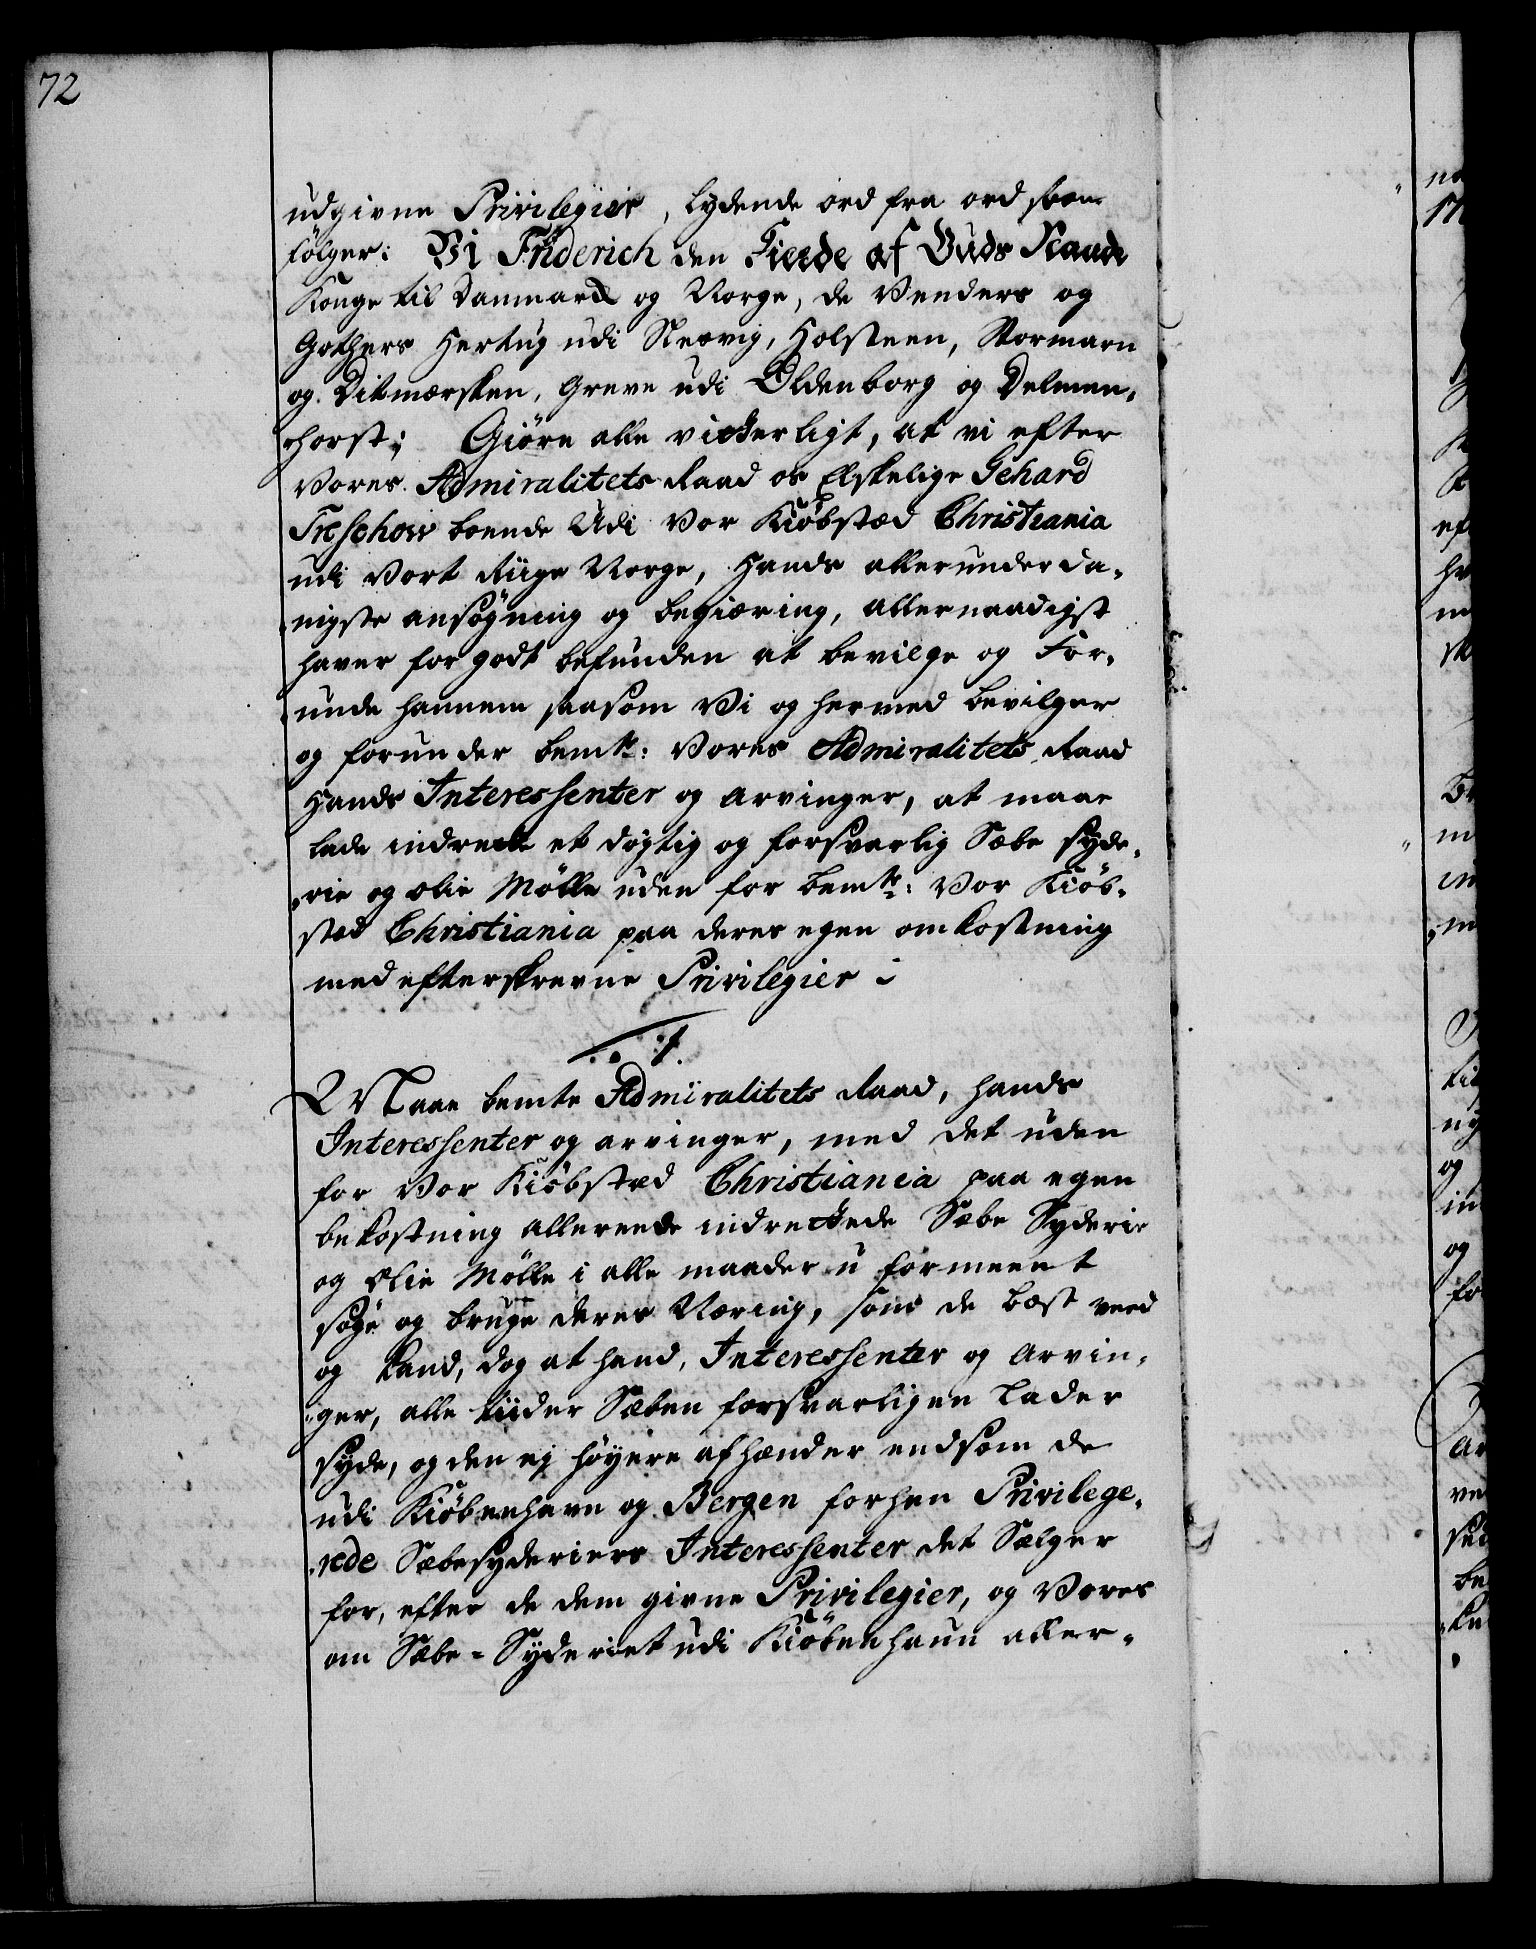 72
udgivne Privilegier, lydende ord fra ord som
følger: Vi Friderich den Fierde af Guds Naade
Konge til Danmarck og Norge, de Venders og
Gothers Hertug udi Slesvig, Holsteen, Stormarn
og Ditmærsken, Greve udi Oldenborg og Delmen-
horst; Giøre alle vitterligt, at vi efter
Vores Admiralitets Raad os Elskelige Gehard
Treschow boende Udi Vor Kiøbstæd Christiania
udi Vort Riige Norge, Hands allerunderda-
nigste ansøgning og begiæring, allernaadigst
haver for godt befunden at bevilge og For-
unde hannem saasom Vi og hermed bevilger
og forunder bemte: Vores Admiralitets Raad
Hands Interessenter og arvinger, at maae
lade indrette et døgtig og forsvarlig Sæbe syde-
rie og olie Mølle uden for bemte: Vor Kiøb-
stæd Christiania paa deres egen omkostning
med efterskrevne Privilegier :
1.
Maae bemte Admiralitets Raad, hands
Interessenter og arvinger, med det uden
for Vor Kiøbstæd Christiania paa egen
bekostning allereede indrettede Sæbe Syderie
og Olie Mølle i alle maader u formeent
søge og bruge deres Næring, som de best veed
og kand, dog at hand, Interessenter og Arvin-
ger, alle tiider Sæben forsvarligen lader
syde, og den ej høyere afhænder end som de
udi Kiøbenhavn og Bergen forhen Privilege-
rede Sæbesyderiers Interessenter det Sælger
for, efter de dem givne Privilegier, og Vores
om Sæbe-Syderiet udi Kiøbenhavn aller-